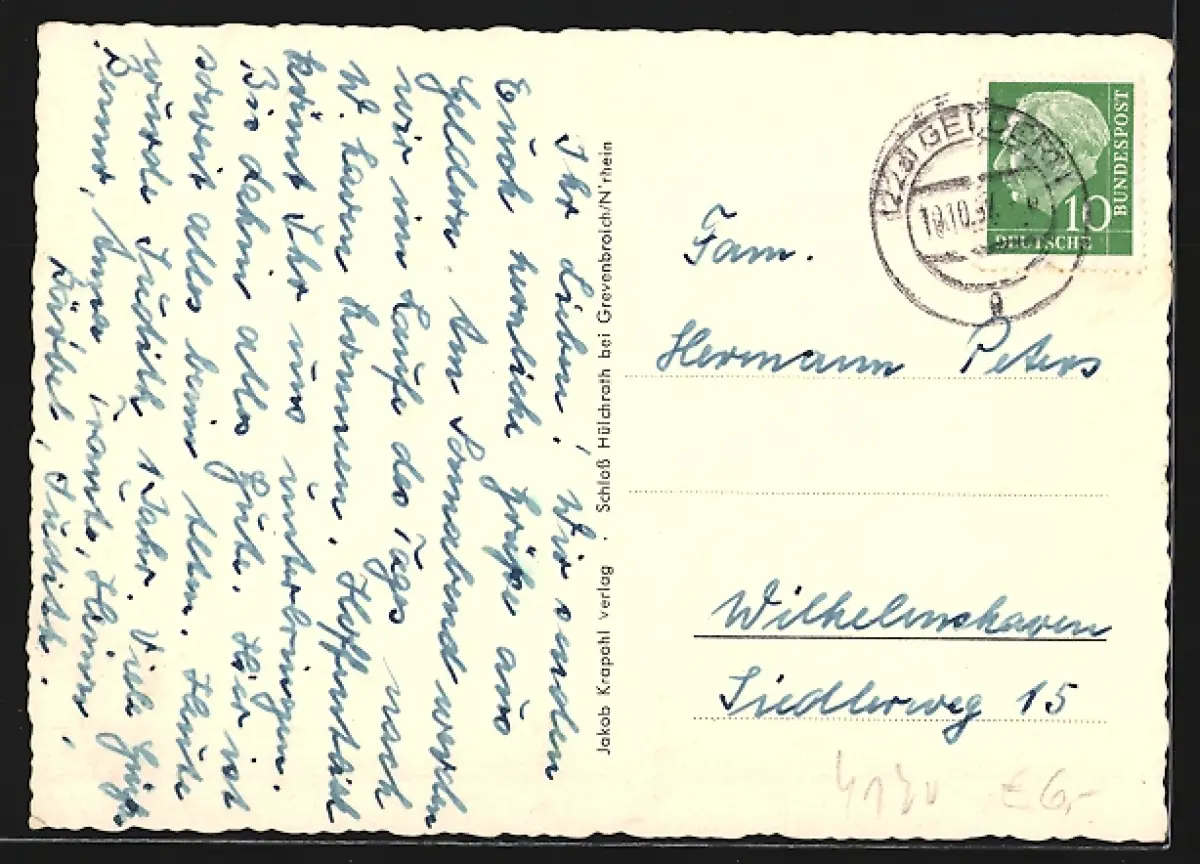 Ihr Lieben! Wir senden
Euch herzliche Grüße aus
Geldern. Am Sonnabend werden
wir im Laufe des Tages nach
W. haven kommen. Hoffentlich
könnt Ihr uns unterbringen.
Bis dahin alles Gute. Hier ist
soweit alles beim Alten. Heute
wurde Judith 1 Jahr. Viele Grüße
Anna, Traute, Heinz,
Bärbel, Judith.
Jakob Krapohl verlag · Schloß Hülchrath bei Grevenbroich/N'rhein
(22a) GELDERN
10.10.57
a
10
DEUTSCHE
BUNDESPOST
Fam.
Hermann Peters
Wilhelmshaven
Siedlerweg 15
€ 6,-